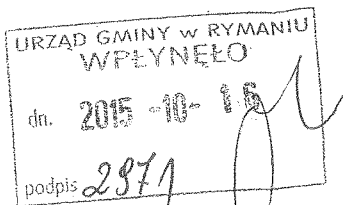 URZĄD GMINY w RYMANIU
WPŁYNĘŁO
dn. 2015 -10- 16
podpis 2971